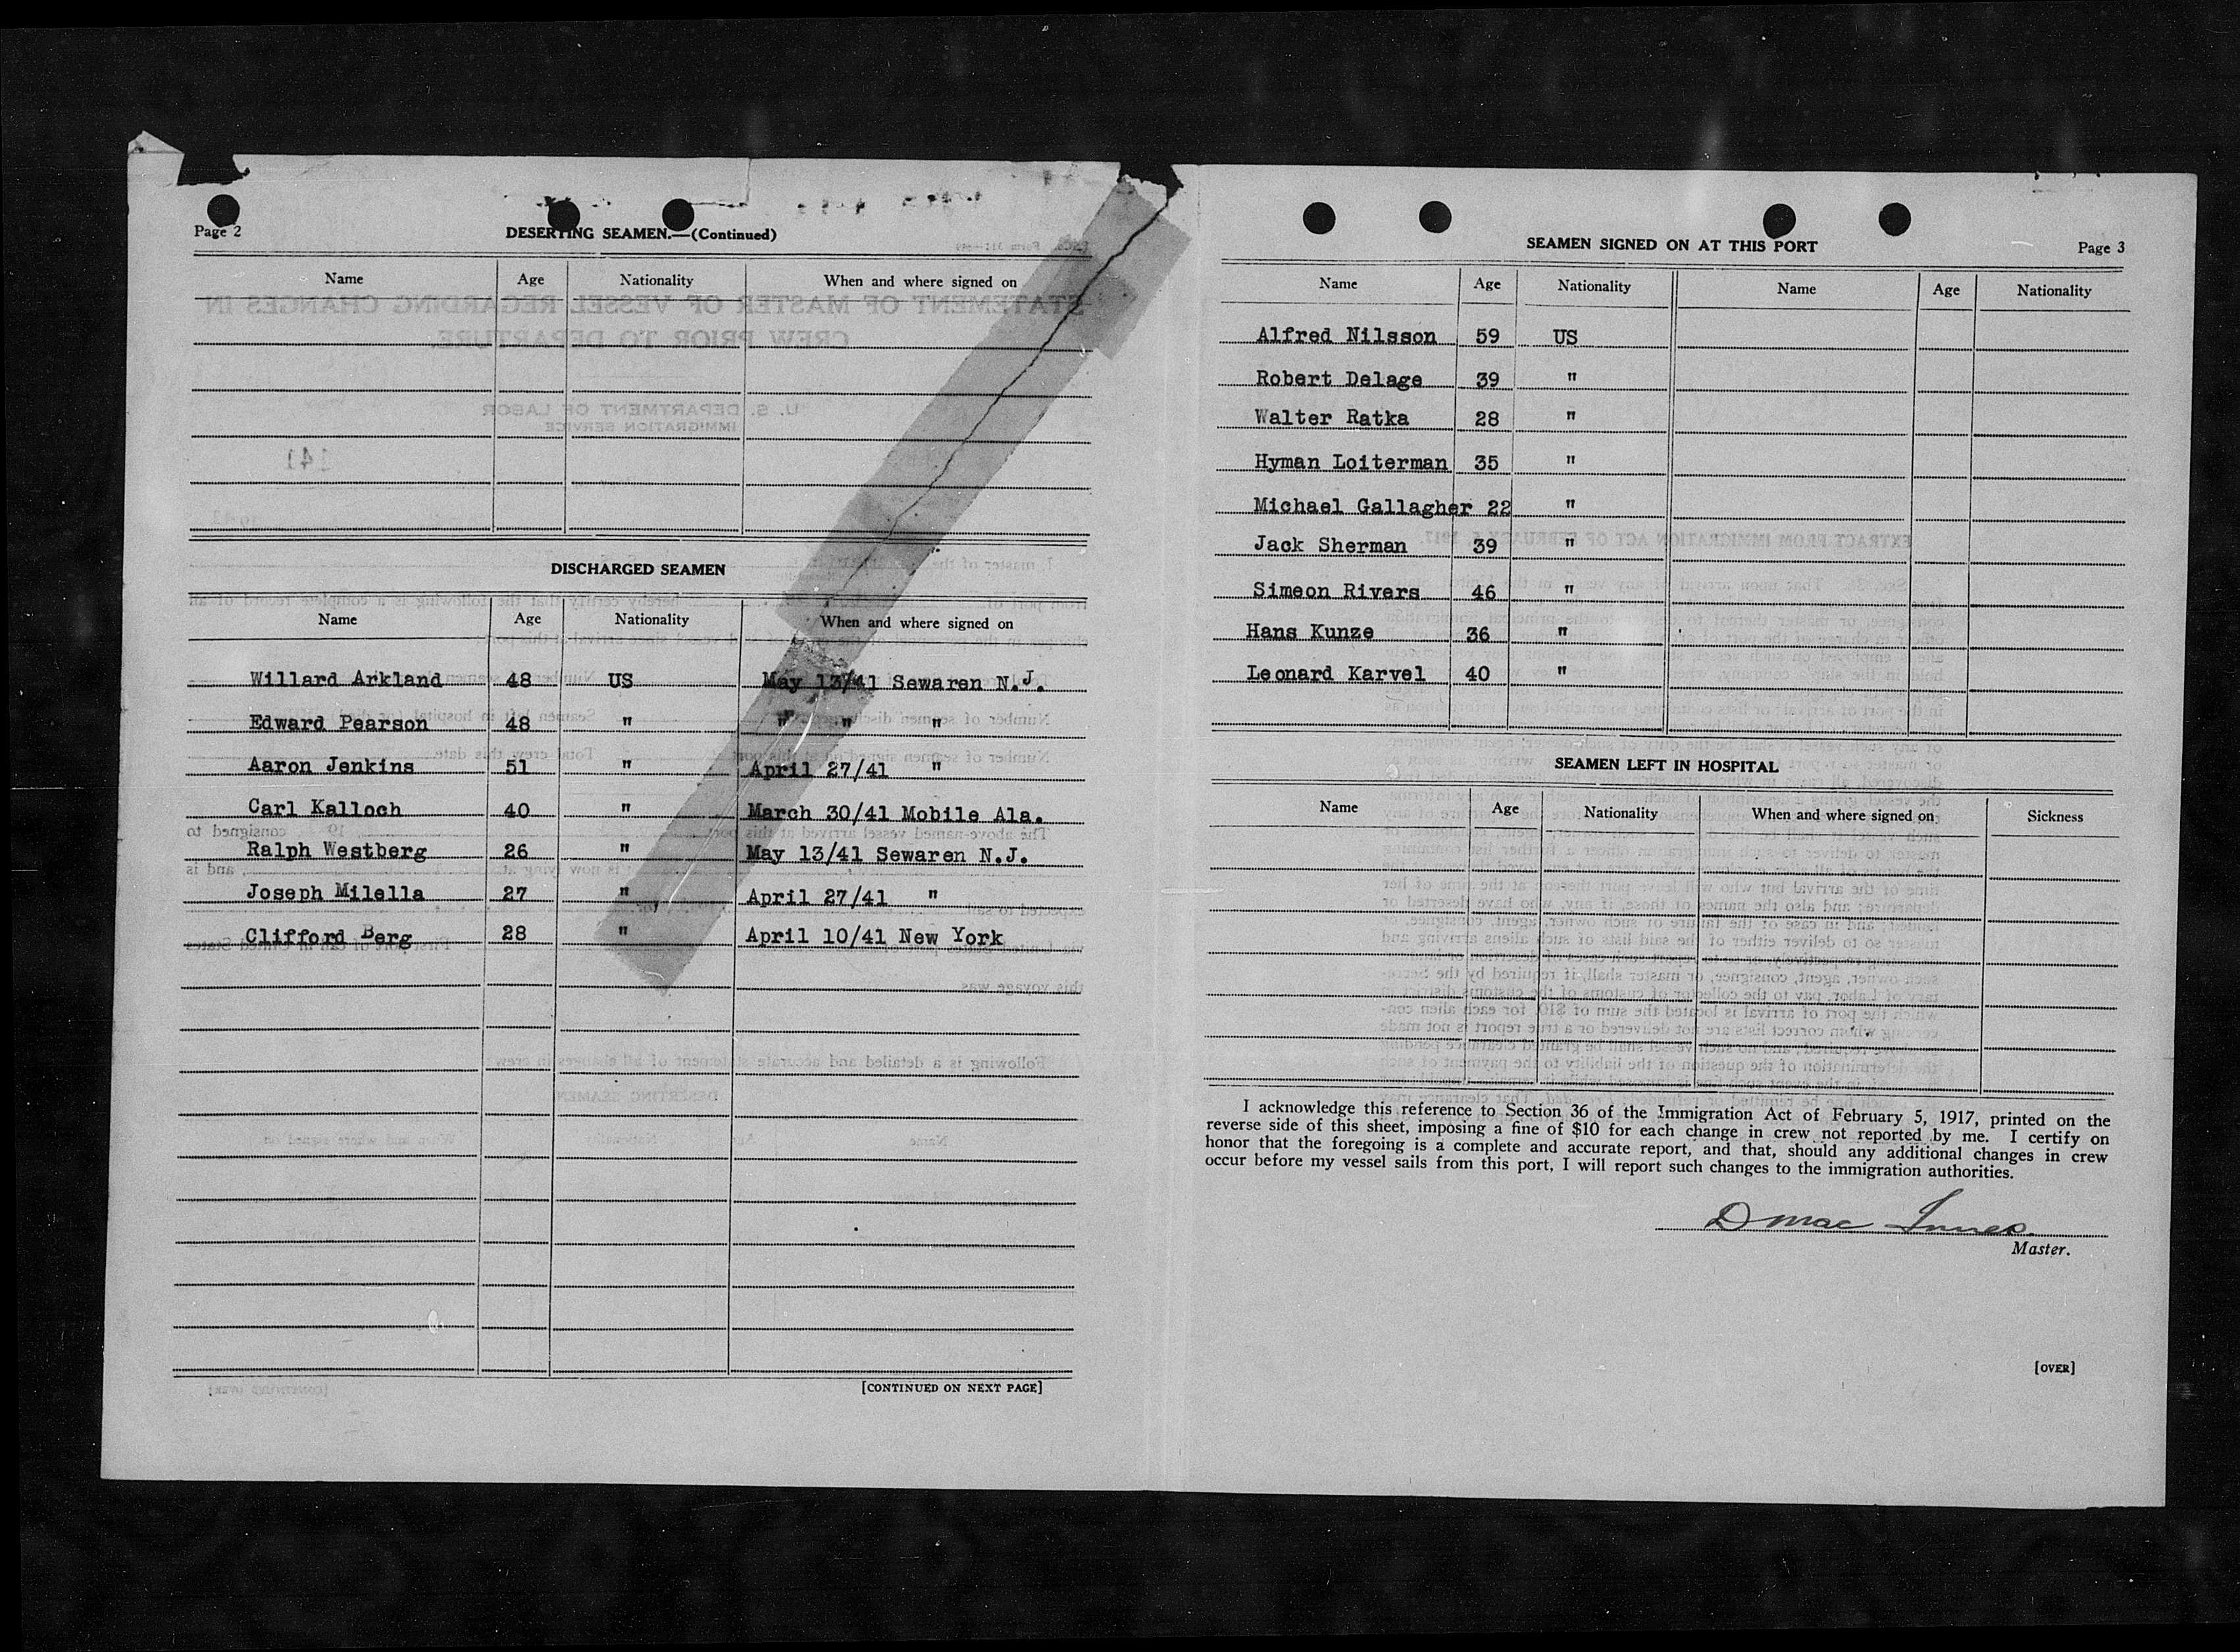 Page 2
DESERTING SEAMEN.—(Continued)
Name Age Nationality When and where signed on
DISCHARGED SEAMEN
Name Age Nationality When and where signed on
Willard Arkland 48 US May 13/41 Sewaren N.J.
Edward Pearson 48 " " " "
Aaron Jenkins 51 " April 27/41 "
Carl Kalloch 40 " March 30/41 Mobile Ala.
Ralph Westberg 26 " May 13/41 Sewaren N.J.
Joseph Milella 27 " April 27/41 "
Clifford Berg 28 " April 10/41 New York
[CONTINUED ON NEXT PAGE]
SEAMEN SIGNED ON AT THIS PORT
Page 3
Name Age Nationality Name Age Nationality
Alfred Nilsson 59 US
Robert Delage 39 "
Walter Ratka 28 "
Hyman Loiterman 35 "
Michael Gallagher 22 "
Jack Sherman 39 "
Simeon Rivers 46 "
Hans Kunze 36 "
Leonard Karvel 40 "
SEAMEN LEFT IN HOSPITAL
Name Age Nationality When and where signed on Sickness
I acknowledge this reference to Section 36 of the Immigration Act of February 5, 1917, printed on the
reverse side of this sheet, imposing a fine of $10 for each change in crew not reported by me. I certify on
honor that the foregoing is a complete and accurate report, and that, should any additional changes in crew
occur before my vessel sails from this port, I will report such changes to the immigration authorities.
D Mac Innes
Master.
[OVER]